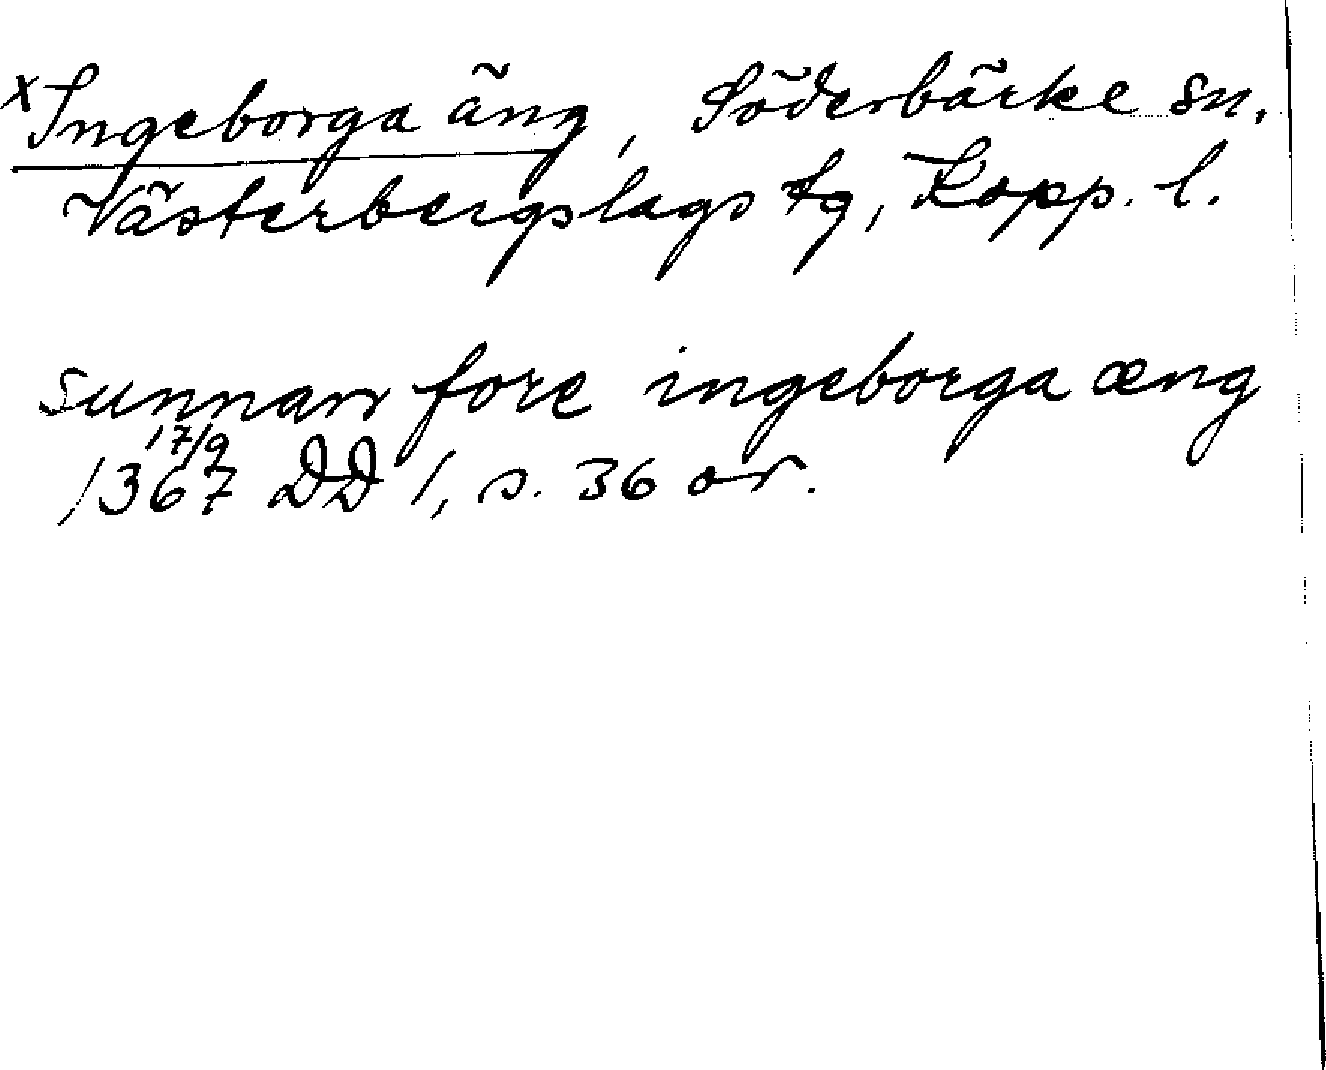 x Ingeborga äng, Söderbärke sn.
Västerbergslags tg, Kopp. l.
sunnan fore ingeborga æng
17/9
1367 DD 1, s. 36 or.